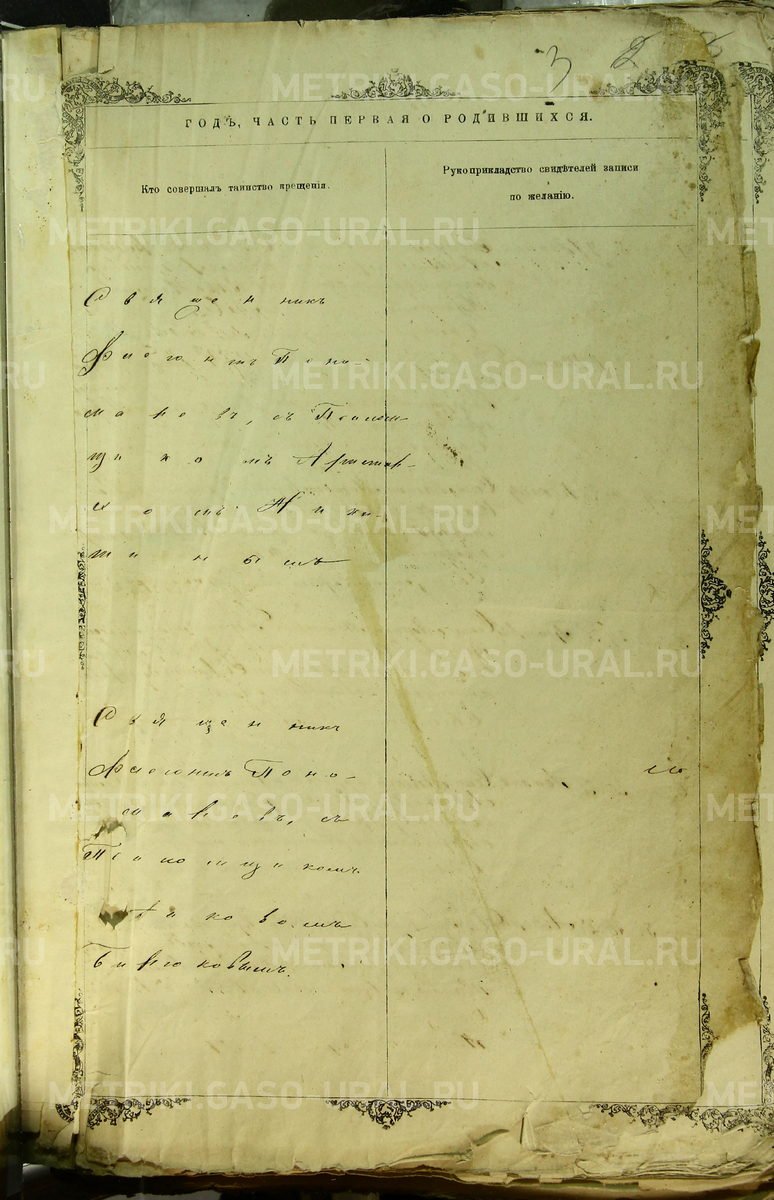 3 2
ГОДЪ, ЧАСТЬ ПЕРВАЯ О РОДИВШИХСЯ.
Кто совершалъ таинство крещенія.
Рукоприкладство свидѣтелей записи
по желанію.
Священникъ
Поно-
маревъ, съ
щикомъ Аристар-
хомъ Ники-
тинымъ
Священникъ
Поно-
маревъ, съ
ковомъ
Бирюковымъ.
METRIKI.GASO-URAL.RU